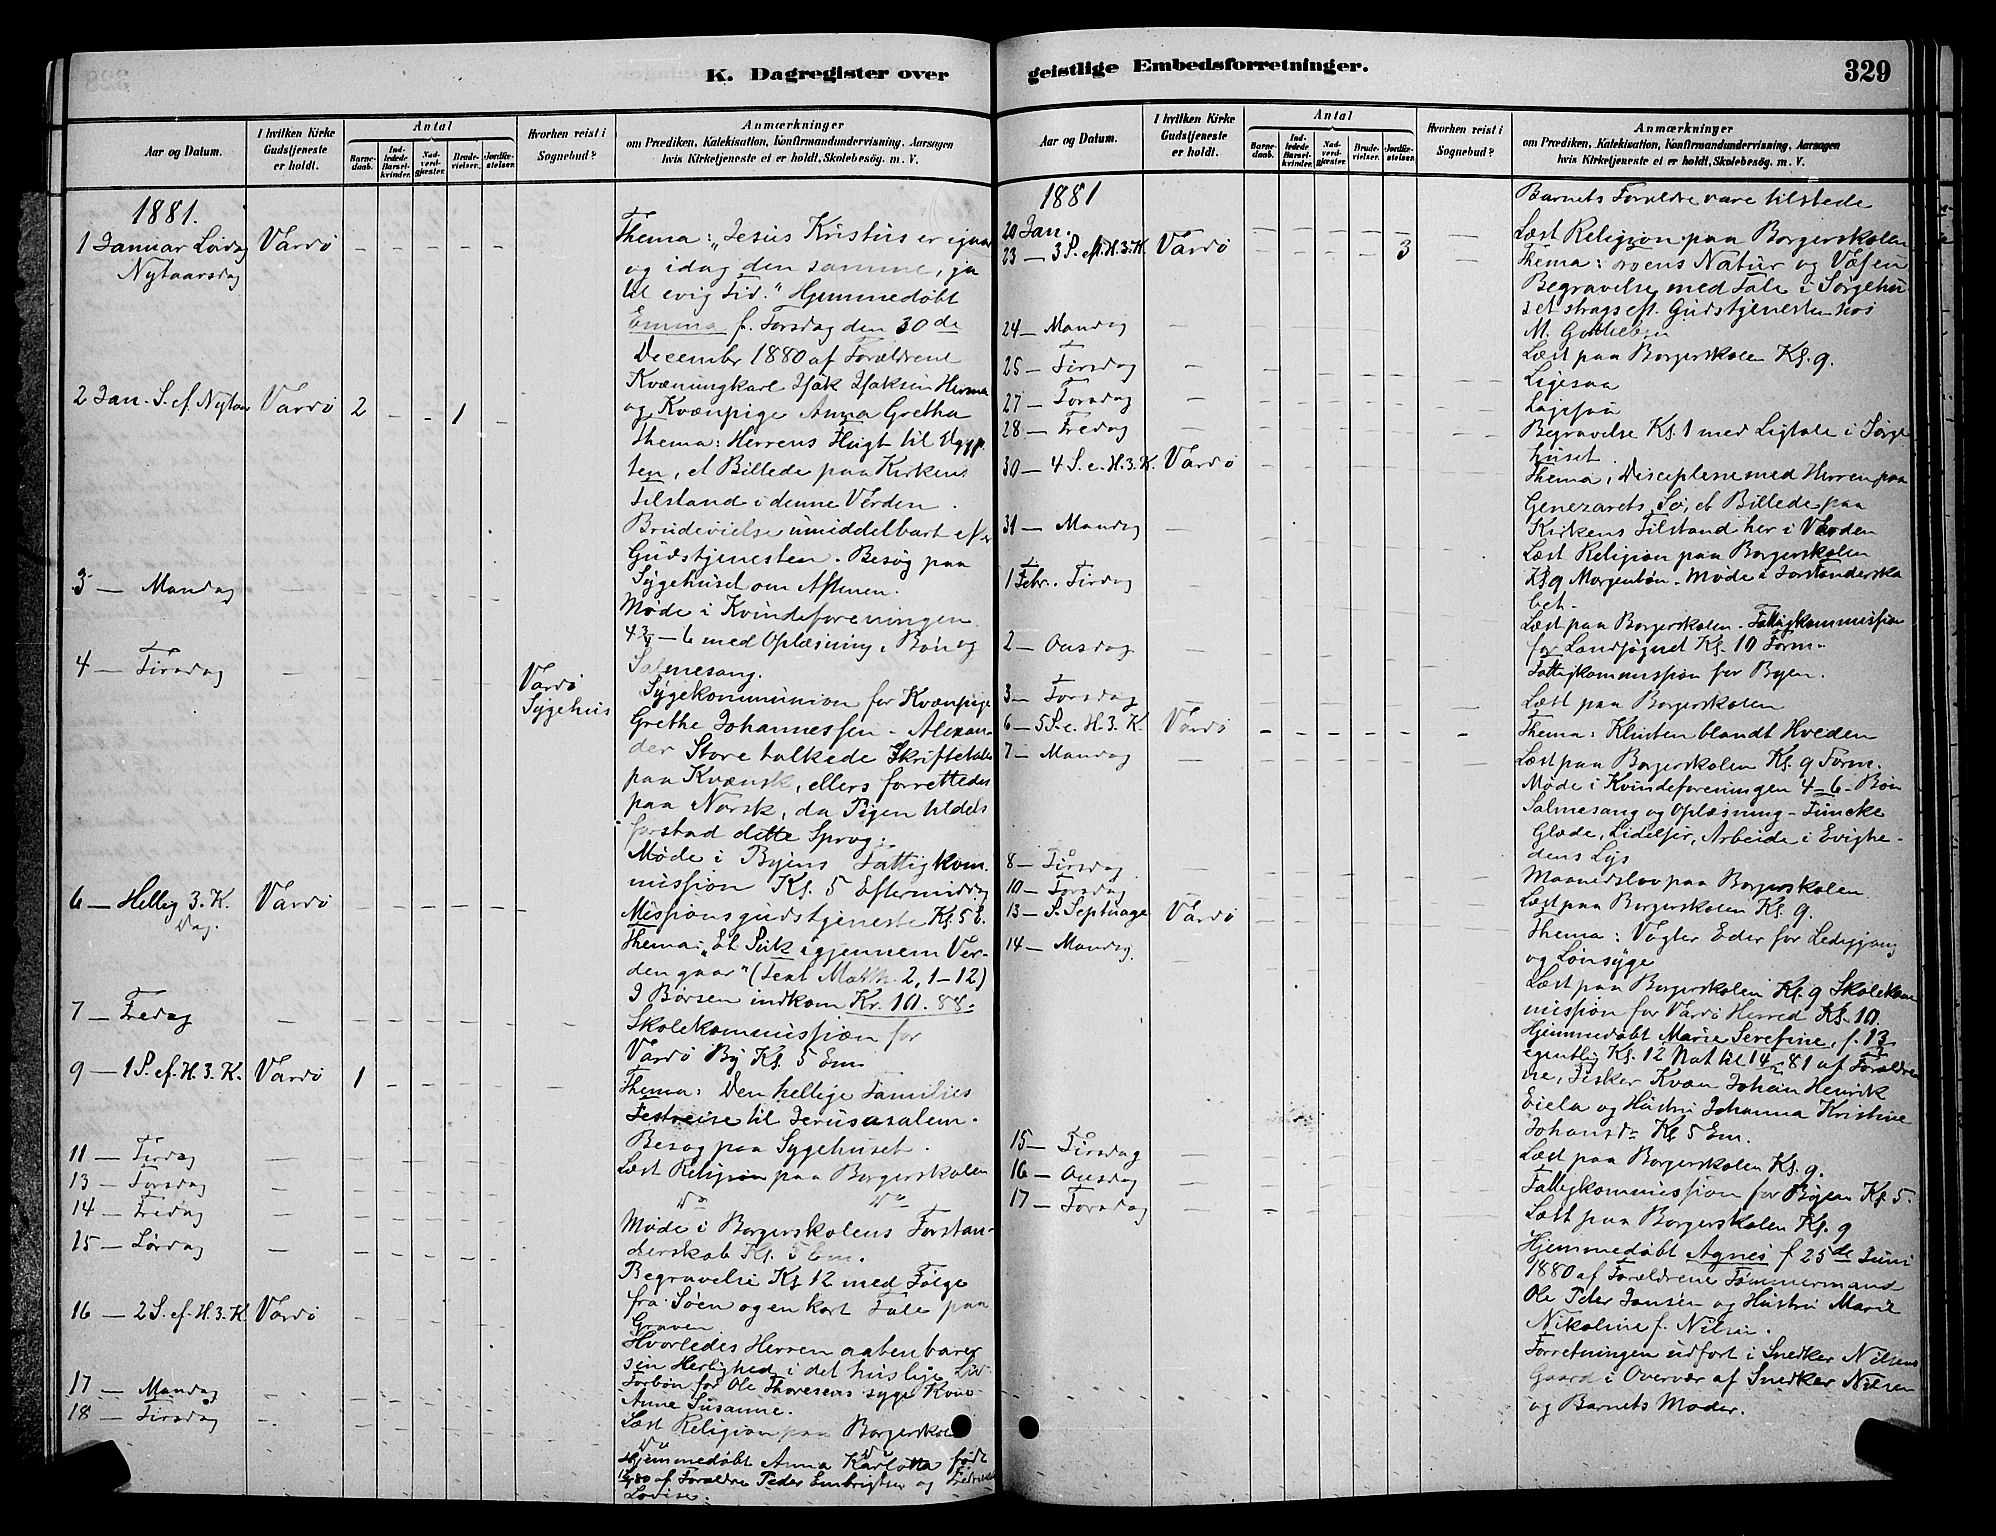 K. Dagregister over
Aar og Datum.
I hvilken Kirke Gudstjeneste er holdt.
Antal
Barnedaab.
Indledede Barselkvinder.
Nadverdgjæster.
Brudevielser.
Jordfæstelser.
Hvorhen reist i Sognebud?
Anmærkninger
om Prædiken, Katekisation, Konfirmandundervisning, Aarsagen
hvis Kirketjeneste ei er holdt, Skolebesøg. m. V.
1881.
1 Januar Lørdag Vardö
Nytaarsdag
Thema: "Jesus Kristus er igaar
og idag den samme, ja
til evig Tid." Hjemmedøbt
Emma f. Torsdag den 30de
December 1880 af Forældrene
Kvænungkarl Isak Isaksen
og Kvænpige Anna Gretha
2 Jan. S. ef. Nytaar Vardö 2 - - 1 -
Thema: Herrens Flugt til Egyp
ten, et Billede paa Kirkens
Tilstand i denne Verden.
Brudevielse umiddelbart ef.
Gudstjenesten. Besøg paa
Sygehuset om Aftenen.
3 — Mandag
Møde i Kvindeforeningen
4¾ - 6 med Oplæsning, Bøn og
Salmesang.
4 — Tirsdag
Vardö
Sygehus
Sygekommunion for Kvænpige
Grethe Johannessen - Alexan
der Store tolkede Skriftetalen
paa Kvænsk, ellers forrettedes
paa Norsk, da Pigen tildels
forstod dette Sprog.
Møde i Byens Fattigkom
mission Kl. 5 Eftermiddag
6 — Hellig 3. K. Vardö
Dag.
Missionsgudstjeneste Kl. 5 E.
Thema: "Et Suk igjennem Ver-
den gaar" (Text Matth. 2, 1-12)
I Bøssen indkom Kr. 10. 88.
7 — Fredag
Skolekommission for
Vardö By Kl. 5 Em.
9 — 1 S. ef. H. 3. K. Vardö 1
Thema: Den hellige Families
Festreise til Jerusalem.
Besøg paa Sygehuset.
11 — Tirsdag
Læst Religion paa Borgerskolen
13 — Torsdag
do do
14 — Fredag
Møde i Borgerskolens Forstan-
derskab Kl. 5 Em.
15 — Lørdag
Begravelse Kl 12 med Følge
fra Søen og en kort Tale paa
Graven
16 — 2 S. ef. H. 3. K. Vardö
Hvorledes Herren aabenbarer
sin Herlighed i det huslige Liv
Forbøn for Ole Thoresens syge Kone
Anne Susanne.
17 — Mandag
Læst Religion paa Borgerskolen
18 — Tirsdag
do do
Hjemmedøbt Anna Karlotta født
af Forældre Peder Embrigtsen og
Lovise.
geistlige Embedsforretninger.
329
Aar og Datum.
I hvilken Kirke Gudstjeneste er holdt.
Antal
Barnedaab.
Indledede Barselkvinder.
Nadverdgjæster.
Brudevielser.
Jordfæstelser.
Hvorhen reist i Sognebud?
Anmærkninger
om Prædiken, Katekisation, Konfirmandundervisning, Aarsagen
hvis Kirketjeneste ei er holdt, Skolebesøg. m. V.
1881
Barnets Forældre vare tilstede
20 Jan.
Læst Religion paa Borgerskolen
23 — 3 S. ef. H. 3. K. Vardö 3
Thema: Troens Natur og Væsen
Begravelse med Tale i Sørgehu
set strags eft. Gudstjenesten hos
M. Gottleben
24 — Mandag
Læst paa Borgerskolen Kl. 9.
25 — Tirsdag
Ligesaa
27 — Torsdag
Ligesaa
28 — Fredag
Begravelse Kl. 1 med Ligtale i Sørge
huset.
30 — 4 S. e. H. 3. K. Vardö
Thema: Disciplene med Herren paa
Genezarets Sø, et Billede paa
Kirkens Tilstand her i Verden
31 — Mandag
Læst Religion paa Borgerskolen
Kl 9 Morgenbøn. Møde i Forstanderska
bet.
1 Febr. Tirsdag
Læst paa Borgerskolen - Fattigkommission
for Landsognet Kl. 10 Form.
2 — Onsdag
Fattigkommission for Byen.
3 — Torsdag
Læst paa Borgerskolen
6 — 5 S. e. H. 3. K. Vardö
Thema: Klinten blandt Hveden
7 — Mandag
Læst paa Borgerskolen Kl. 9 Form.
Møde i Kvindeforeningen 4-6 - Bøn
Salmesang og Oplæsning - Funcke
Glæde, Lidelser, Arbeide i Evighe-
dens Lys
8 — Tirsdag
Maanedslov paa Borgerskolen
10 — Torsdag
Læst paa Borgerskolen Kl. 9.
13 — S. Septuage Vardö
Thema: Vogter Eder for Lediggang
og Lønsyge
14 — Mandag
Læst paa Borgerskolen Kl. 9 Skolekom
mission for Vardö Herred Kl. 10.
Hjemmedøbt Marie Serefine, f. 13
egentlig Kl. 12 Nat til 14/2 81 af Forældre
ne, Fisker Kvæn Johan Henrik
Eiela og Hustru Johanna Kristine
Johansdr Kl 5 Em.
15 — Tirsdag
Læst paa Borgerskolen Kl. 9.
16 — Onsdag
Fattigkommission for Byen Kl. 5.
17 — Torsdag
Læst paa Borgerskolen Kl. 9
Hjemmedøbt Agnes f 25de Juni
1880 af Forældrene Tømmermand
Ole Peder Jansen og Hustru Marie
Nikoline f. Nilsen.
Forretningen udført i Snedker Nilsens
Gaard i Overvær af Snedker Nilsen
og Barnets Moder.